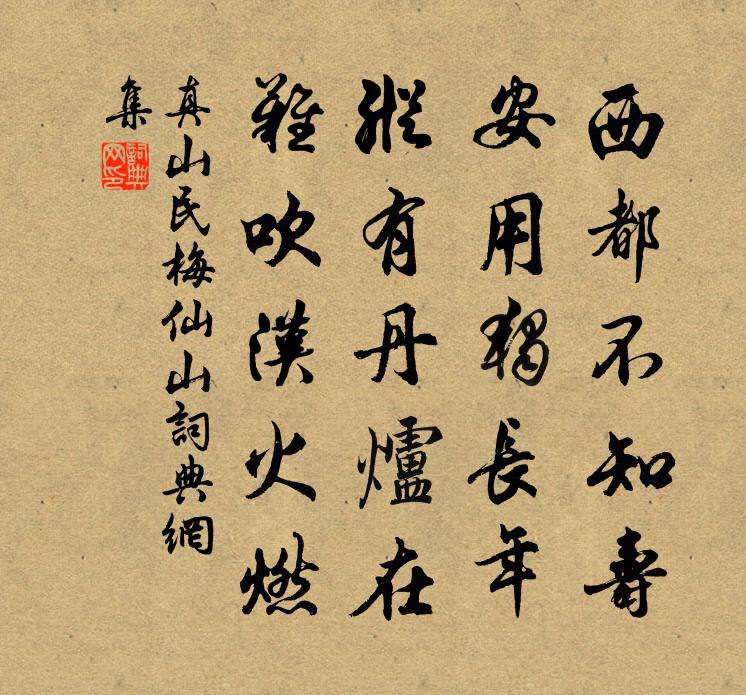 西都不知壽
安用獨長年
縱有丹爐在
難吹漢火燃
真山民梅仙山詞典網
集
詞典網印